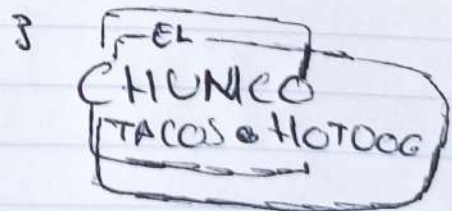 3
EL
CHUNICO
TACOS • HOTDOG